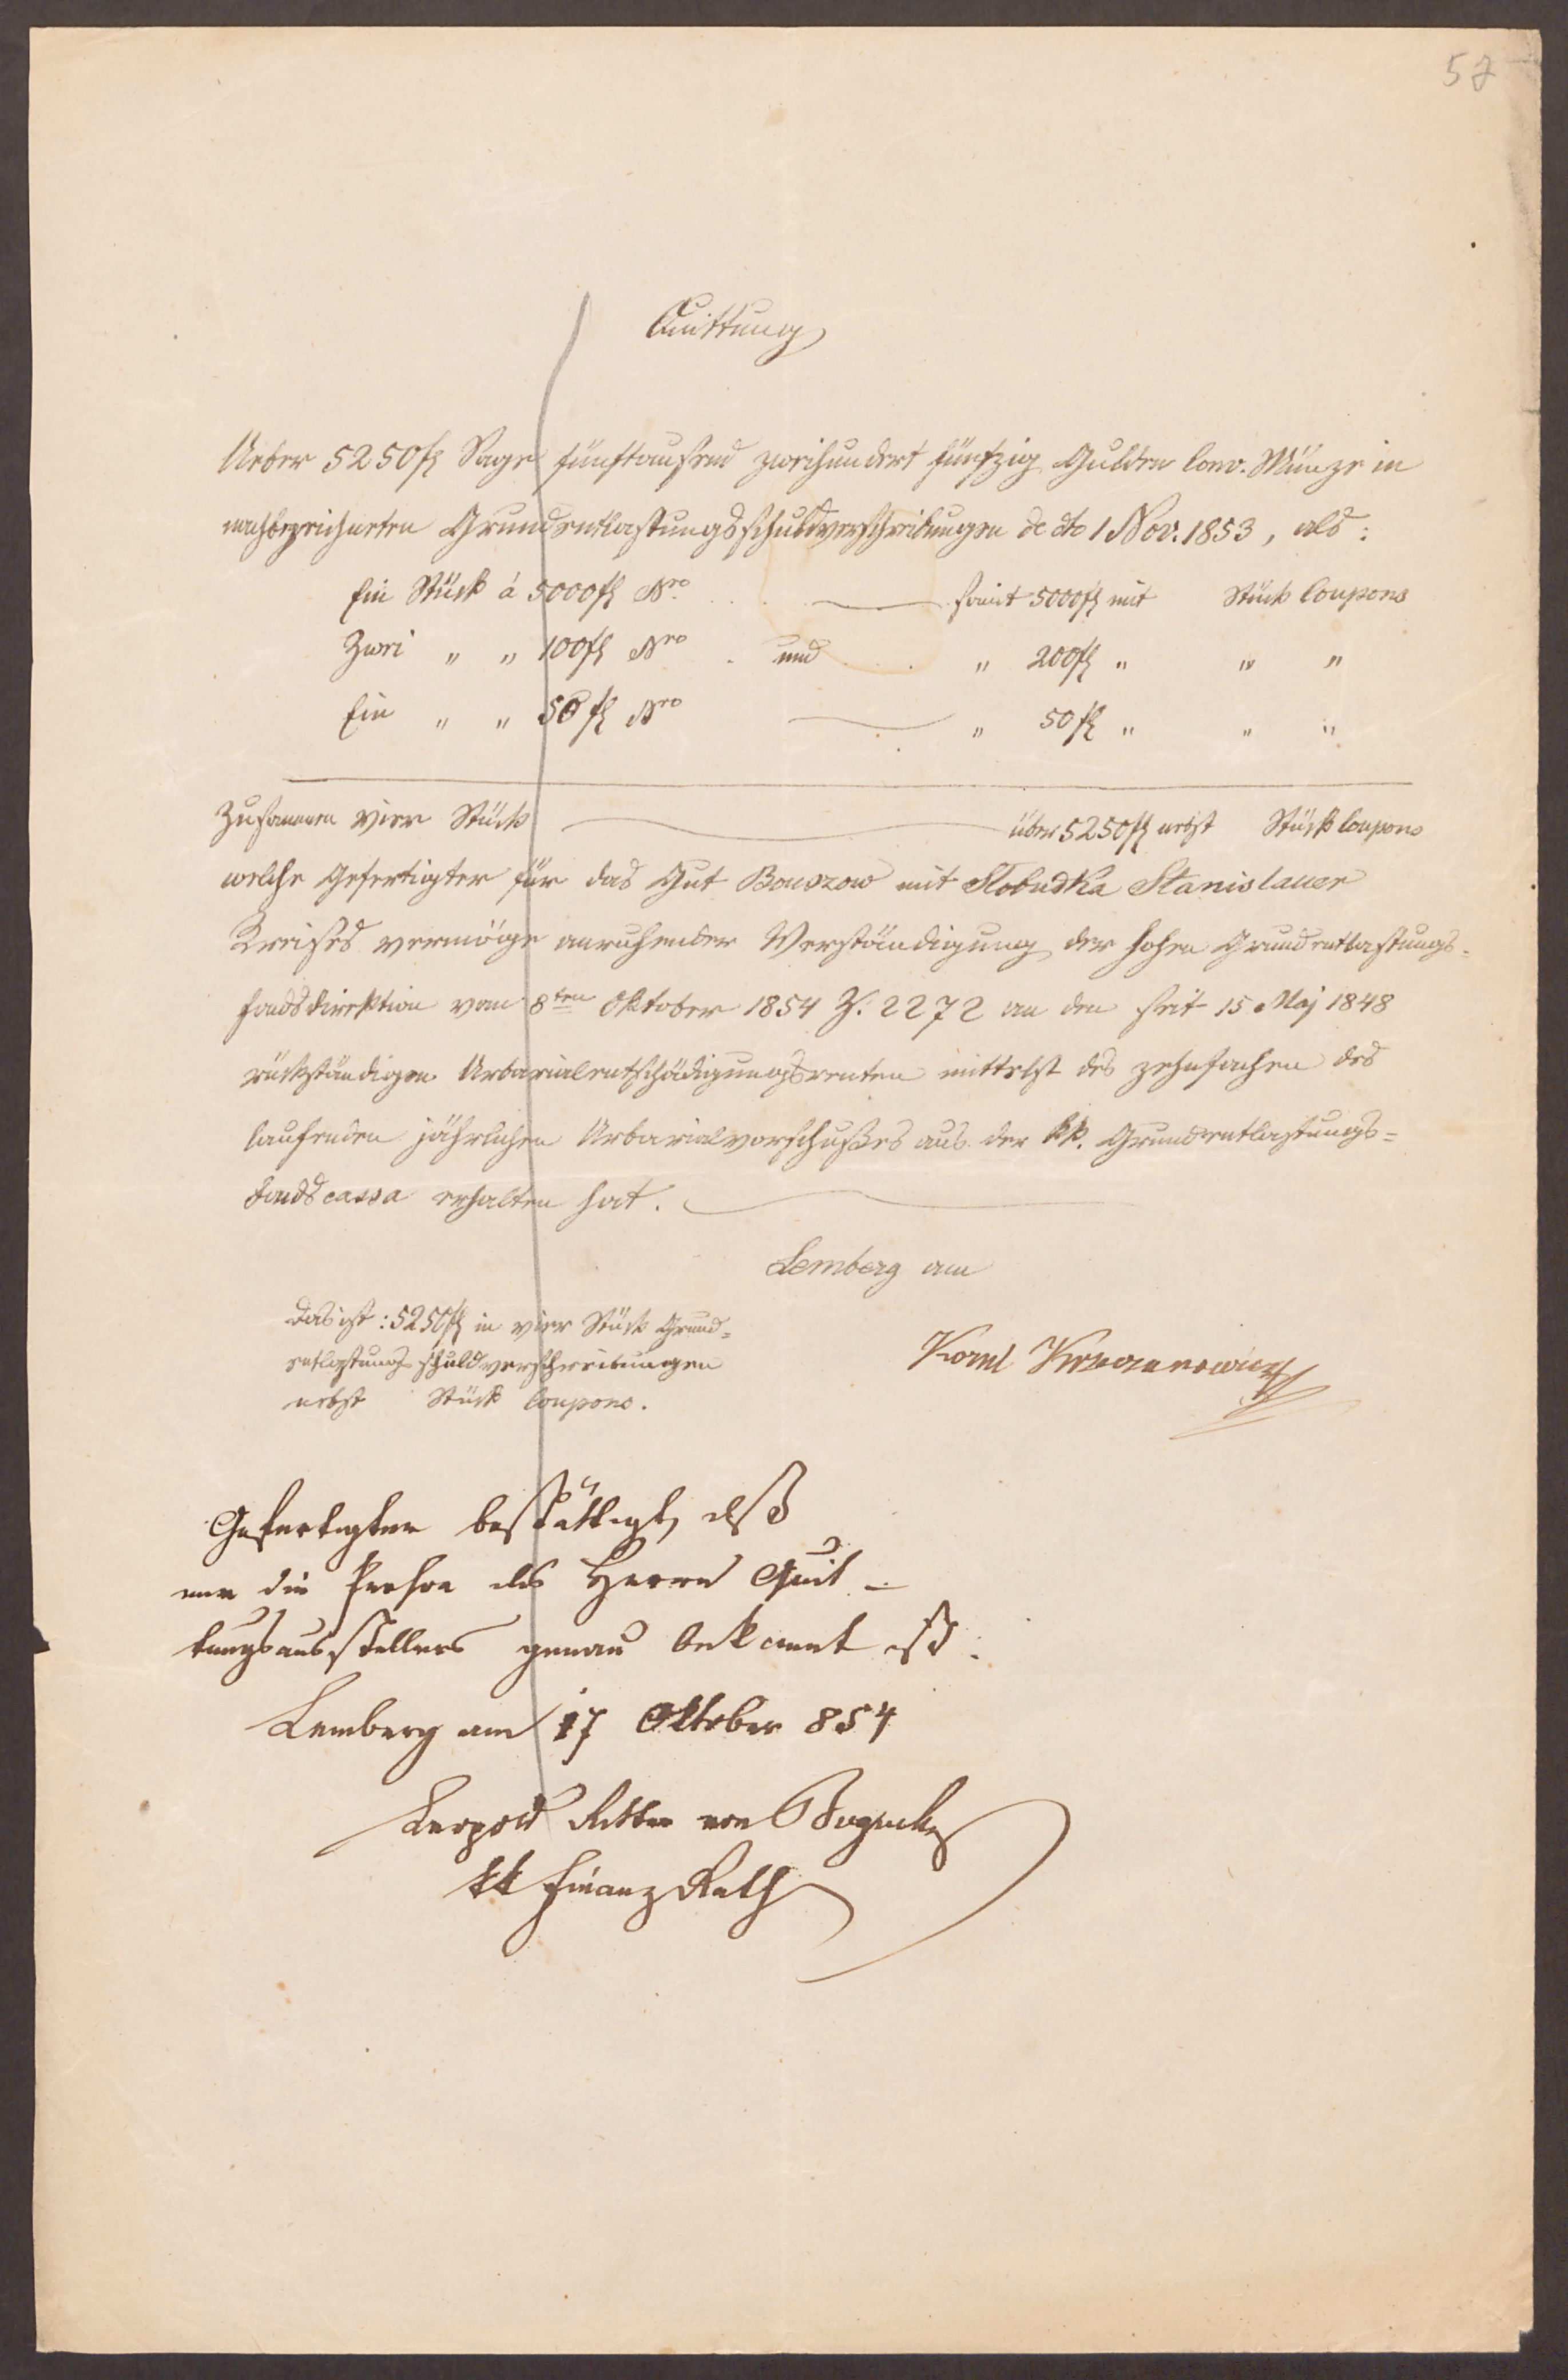 57
Quittung
Ueber 5250 fl Sage fünftausend zweihundert fünfzig Gulden Conv. Münze in
nachbezeichneten Grundentlastungsschuldverschreibungen de dto 1 Nov. 1853, als:
Ein Stück á 5000 fl Nro. . . somit 5000 fl mit Stück Coupons
Zwei " " 100 fl Nro . und . . " 200 fl " " "
Ein " " 50 fl Nro " 50 fl " " "
Zusammen vier Stück über 5250 fl nebst Stück Coupons
welche Gefertigter für das Gut Bouszow mit Slobudka Stanislauer
Kreises vermöge anruhender Verständigung der hohen Grundentlastungs-
fondsdirektion vom 8ten Oktober 1854 Z. 2272 an den seit 15 Maj 1848
rückständigen Urbarialentschädigungsrenten mittelst des zehnfachen des
laufenden jährlichen Urbarialvorschußes aus der kk. Grundentlastungs=
fondscassa erhalten hat.
Lemberg am
Das ist: 5250 fl in vier Stück Grund=
entlastungsschuldverschreibungen
nebst Stück Coupons.
Kornl
Gefertigter bestättigt, daß
mir die Person des Herrn Quit-
tungsausstellers genau bekannt ist.
Lemberg am 17 Oktober 854
Leopold Ritter von
kk Finanz Rath